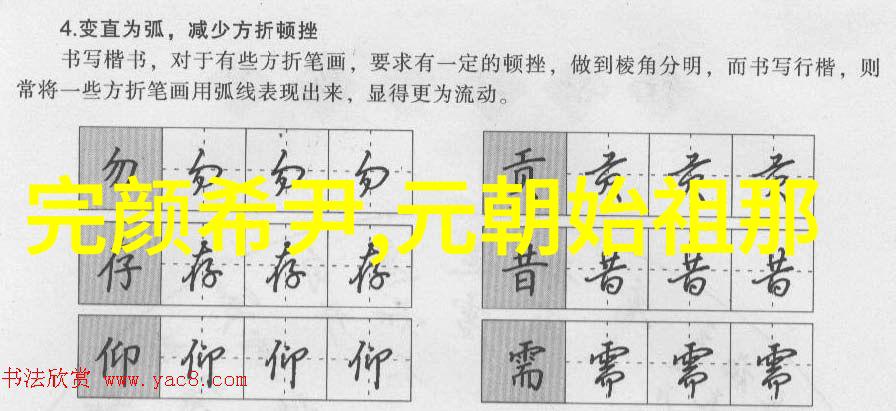 4.变直为弧，减少方折顿挫
书写楷书，对于有些方折笔画，要求有一定的顿挫，做到棱角分明，而书写行楷，则
常将一些方折笔画用弧线表现出来，显得更为流动。
勿 勿 勿 勿 贡 贡 贡 贡
完颜希尹,元朝始祖那
存 存 存 存 昔 昔 昔 昔
仰 仰 仰 仰 需 需 需 需
书法欣赏 www.yac8.com